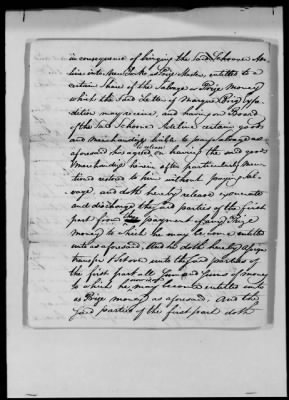 in consequence of bringing the said Schooner Ade
line into New York as Prize Master, entitled to a
certain share of the Salvage or Prize Money
which the said Letter of Marque Brig Expe
dition may receive, and having on Board
of the said Schooner Adeline certain goods
and merchandize liable to pay salvage as
aforesaid has agreed on having the said goods
Merchandize herein after particularly men
tioned restored to him without paying Sal
vage, and doth hereby release exonerate
and discharge the said parties of the first
part from payment of any Prize
Money to which he may become entitled
unto as aforesaid. And he doth hereby assign
transfer & set over unto the said parties of
the first part all sum and sums of money
to which he may become entitled unto
as Prize Money as aforesaid. And the
said parties of the first part doth